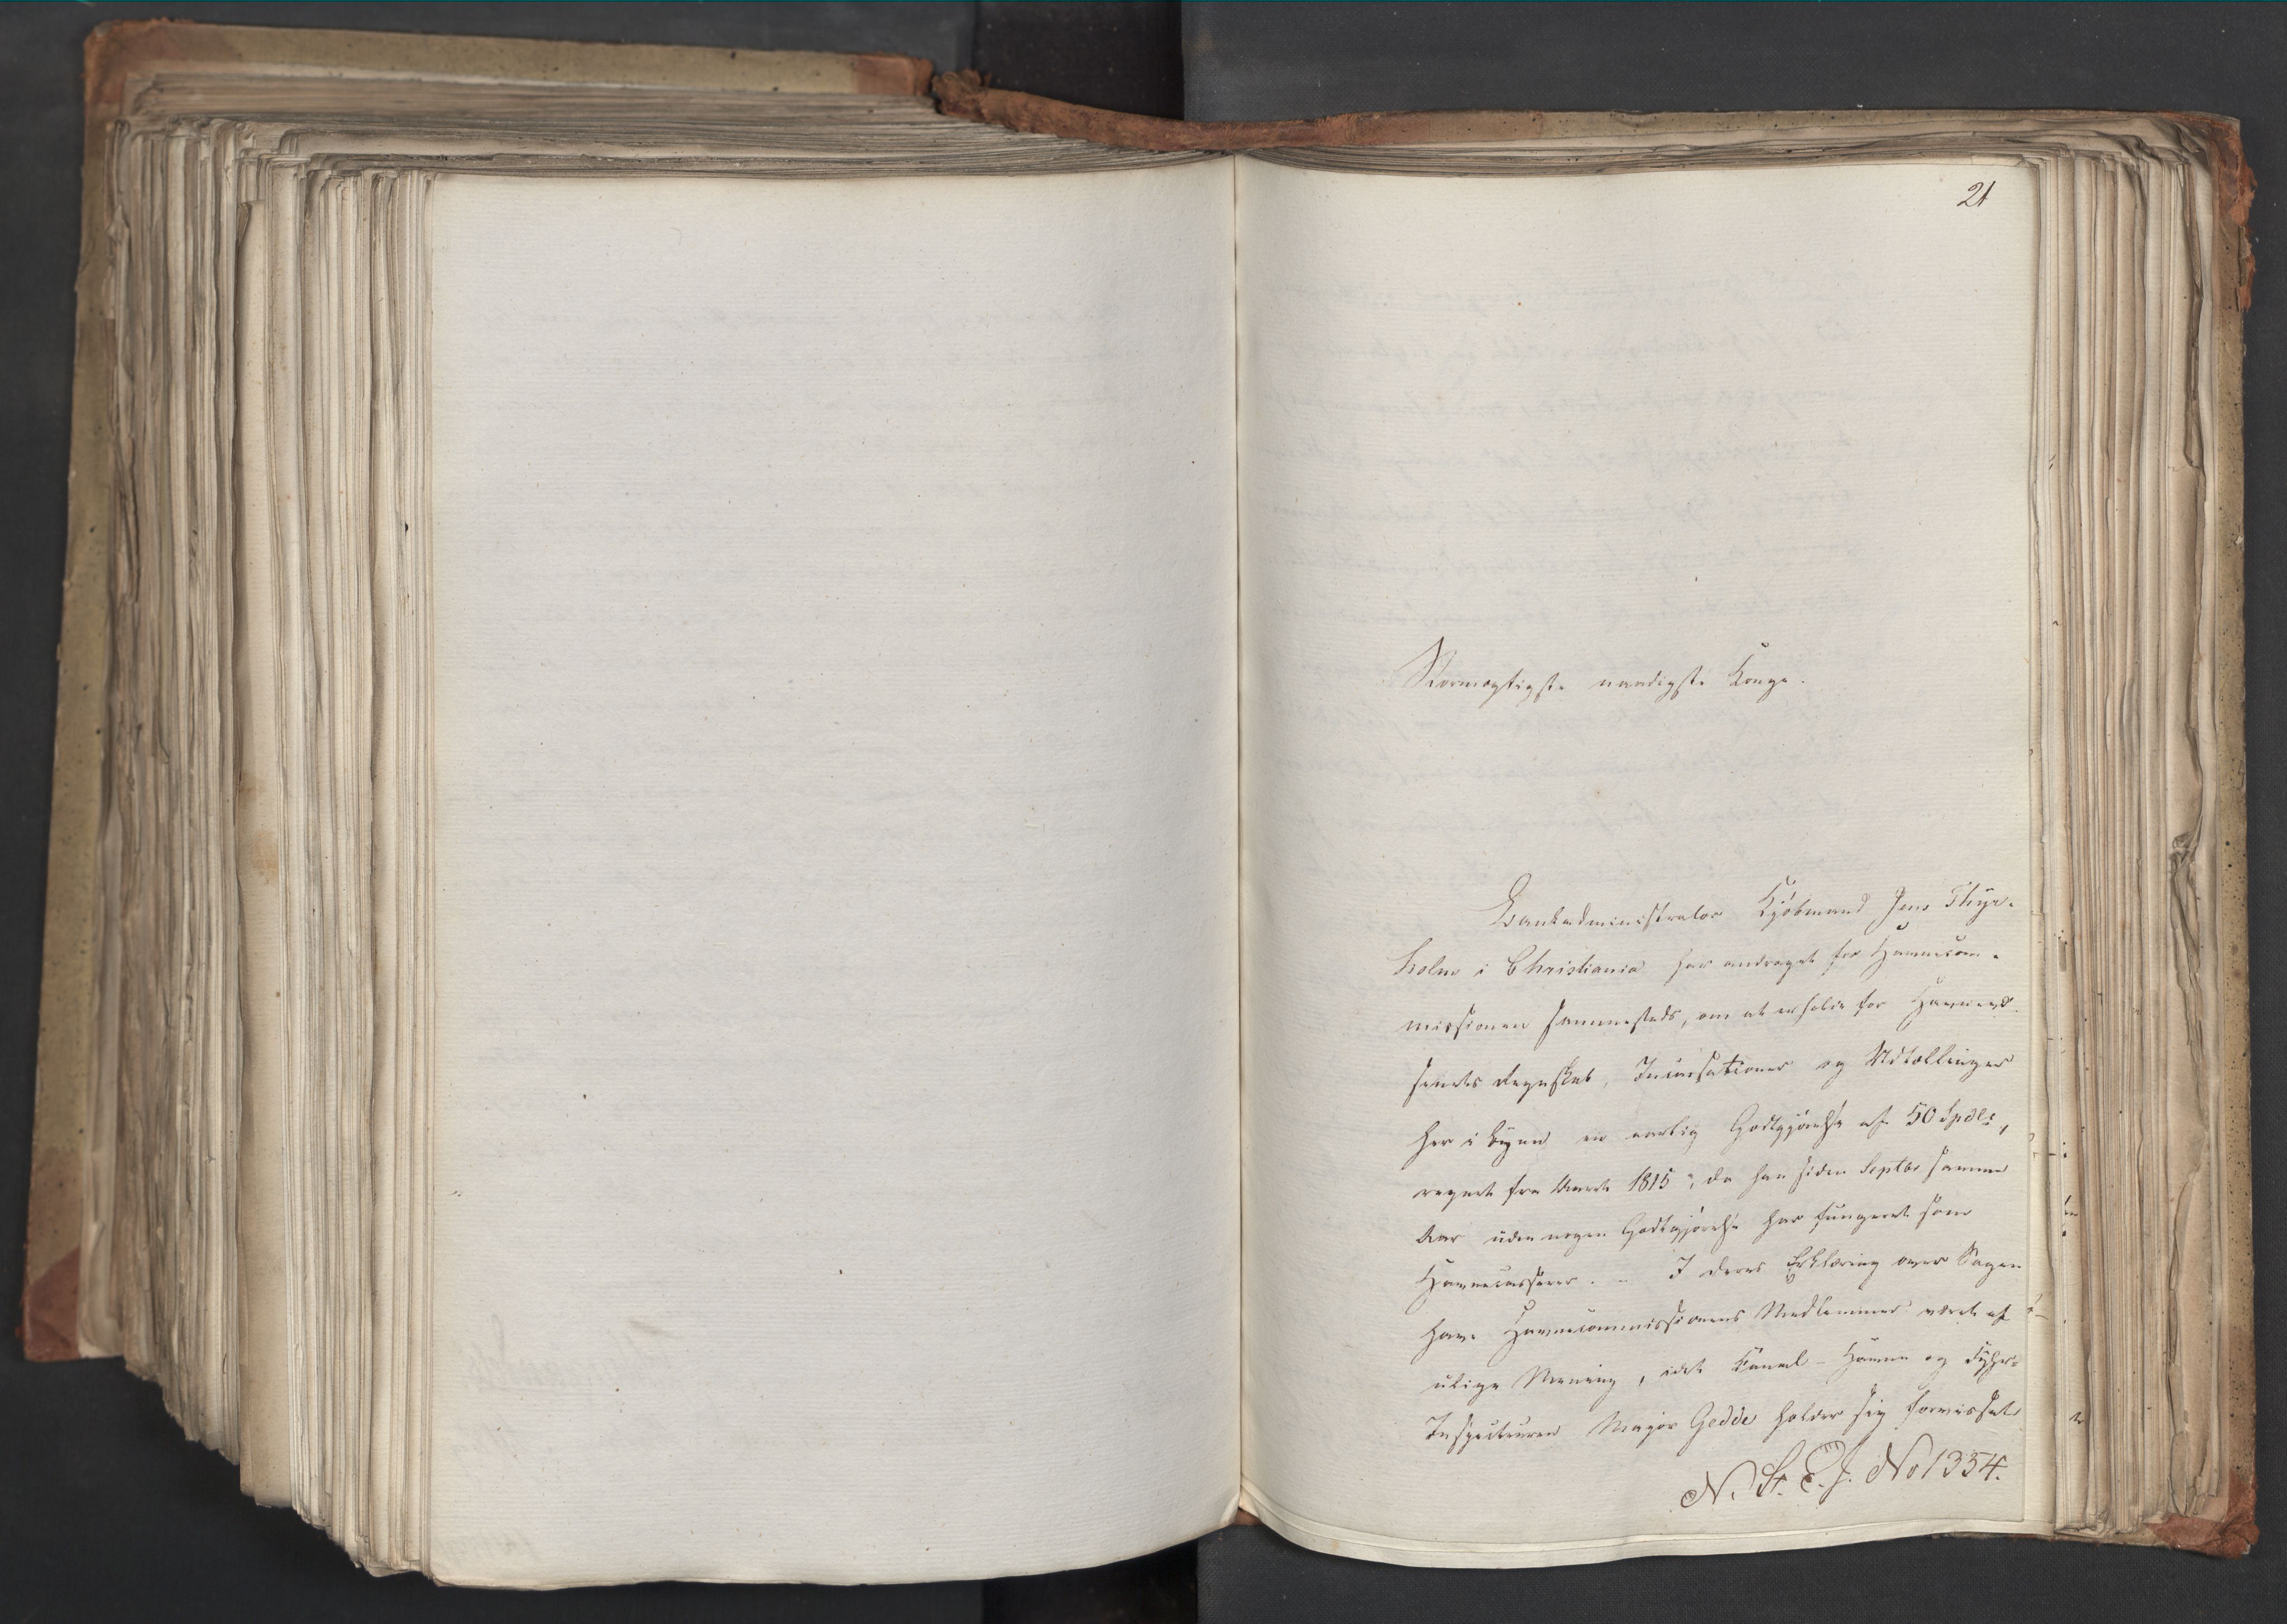 21
Stormægtigste naadigste Konge.
Bankadministrator Kjöbmand Jens Thys-
holm i Christiania har andraget for Havnecom-
missionen sammesteds, om at erholde for Havnevæ-
senets Regnskab, Incassationer og Udtællinger
her i Byen en aarlig Godtgjörelse af 50 Spdlr,
regnet fra Aaret 1815, da han siden Septbr samme
Aar uden nogen Godtgjörelse har fungeret som
Havnecasserer. - I deres Erklæring over Sagen
have Havnecommissionens Medlemmer været af
ulige Mening, idet Canal- Havne og Fyhr-
Inspecteuren Major Gedde holder sig forvisset
N. St. E. J. No 1354.